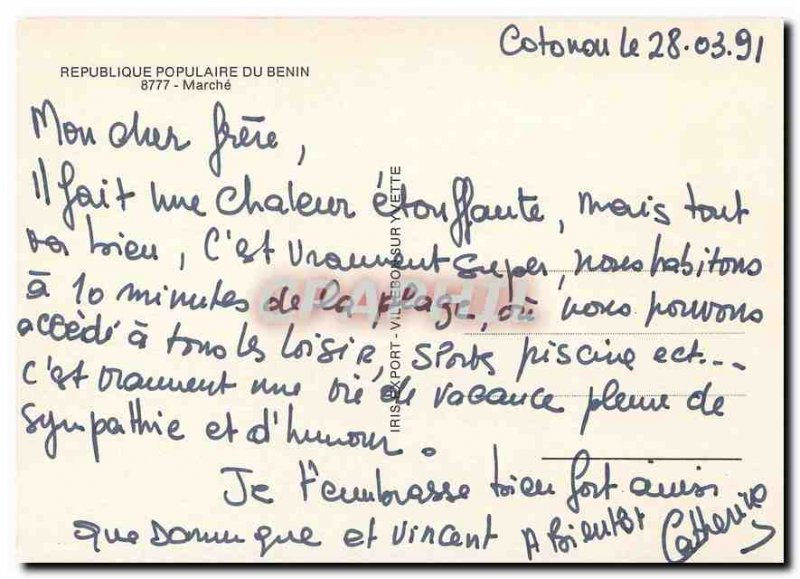 Cotonou le 28.03.91
REPUBLIQUE POPULAIRE DU BENIN
8777 - Marché
Mon cher frère,
Il fait une chaleur étouffante, mais tout
va bien, c'est vraiment super, nous habitons
à 10 minutes de la plage, où nous pouvons
accédé à tous les loisir, sports piscine ect...
c'est vraiment une vie de vacance pleine de
sympathie et d'humour.
Je t'embrasse bien fort ainsi
que Dominique et Vincent A Bientôt Catherine
IRIS-EXPORT - VILLEBON SUR YVETTE